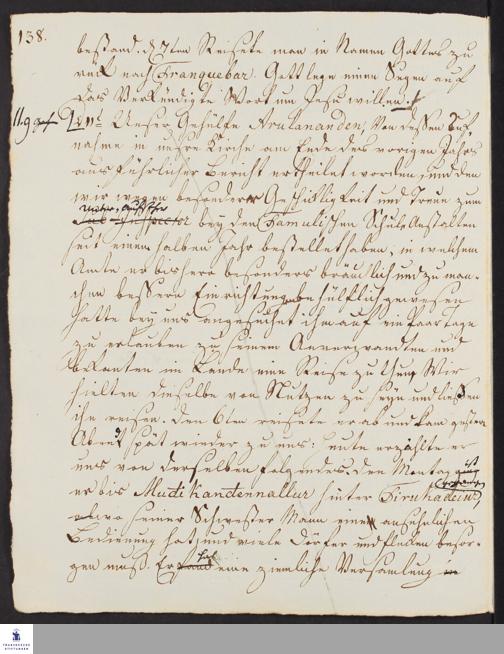 138.
bestand. d. 7ten Reisete man in Namen Gottes zu
rück nach Tranquebar. Gott lege einen Segen auf
das Verkündigte Wort um Jesu willen.
d. 11t. Unser Gehülfe Arulananden, Von dessen Auf
nahme in unsre Kirche am Ende des vorigen Jahrs
ausführlicher Bericht ertheilet worden, und den
wir wegen besonderer Geschicklichkeit und Treue zum
bey den Tamulischen Schul Anstalten
seit einem halben Jahr bestellet haben, in welchem
Amte er bishero besonders bräuchlich und zu man-
chen bessern Einrichtungen behülflich gewesen
hatte bey uns angesucht ihm auf ein Paar Tage
zu erlauben zu seinen Anverwandten und
bekanten im Lande eine Reise zu thun Wir
hielten dieselbe von Nutzen zu seyn und ließen
ihn reisen. Den 6ten reisete er ab und kam gestern
Abend spät wieder zu uns: heute erzählte er
uns von derselben folgendes. den Montag
er bis Mudikandennallur hinter
seiner Schwester Mann eine ansehnliche
Bedienung hat, und viele Dörfer und flecken besor-
gen muß. Er eine ziemliche Versamlung
FRANCKESCHE STIFTUNGEN